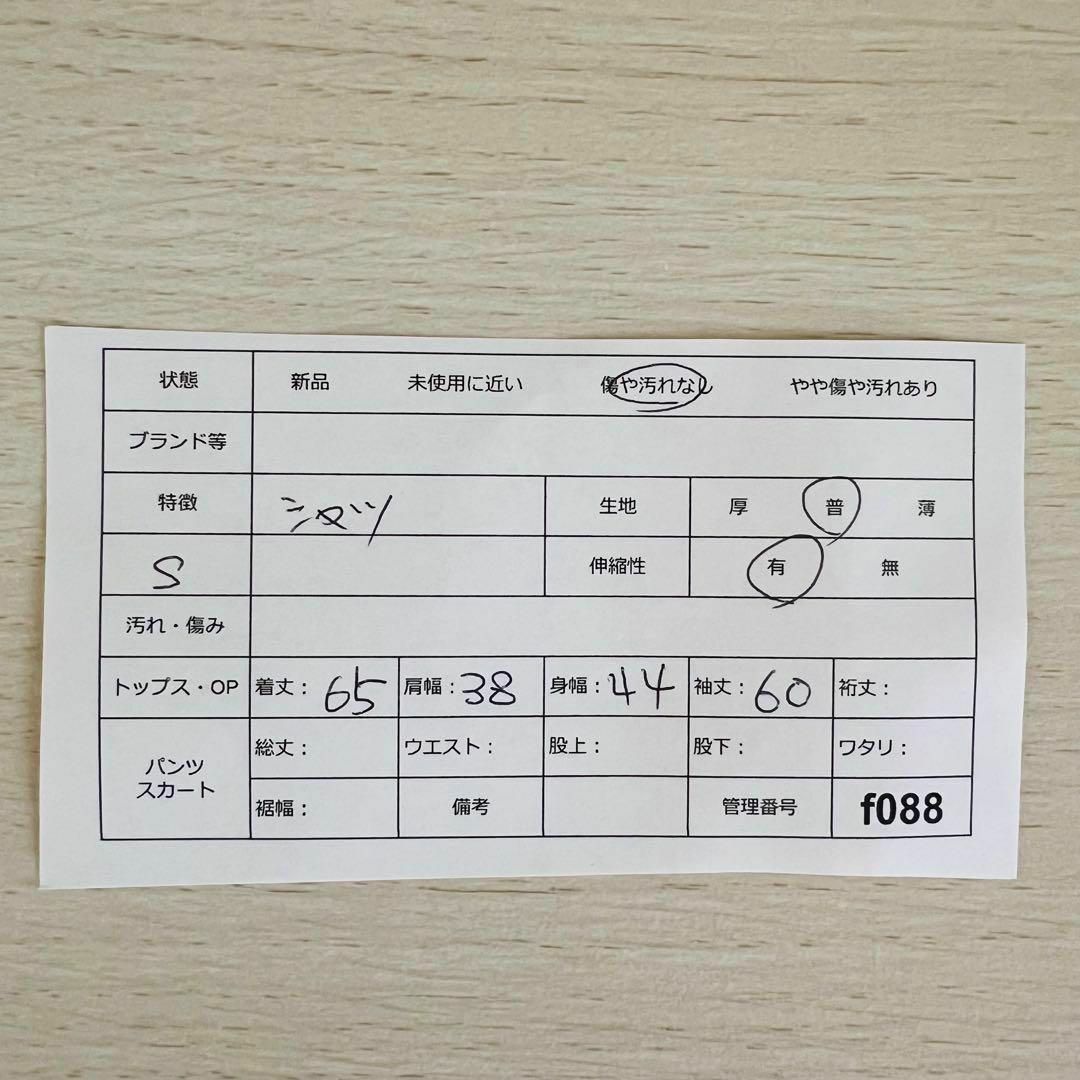 状態 新品 未使用に近い 傷や汚れなし やや傷や汚れあり
ブランド等
特徴 シャツ 生地 厚 普 薄
S 伸縮性 有 無
汚れ・傷み
トップス・OP 着丈：65 肩幅：38 身幅：44 袖丈：60 裄丈：
パンツ スカート 総丈： ウエスト： 股上： 股下： ワタリ：
裾幅： 備考 管理番号 f088